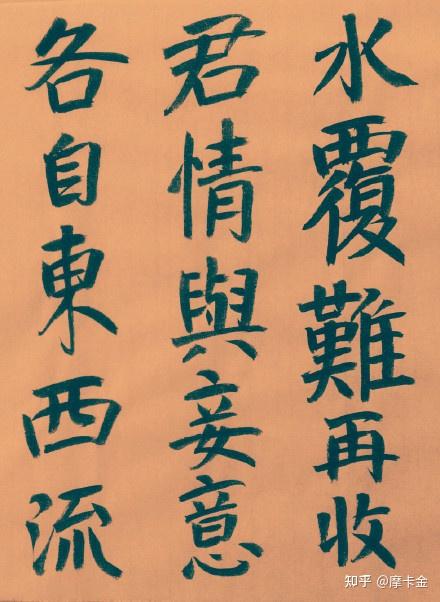 水覆難再收
君情與妾意
各自東西流
知乎 @摩卡金